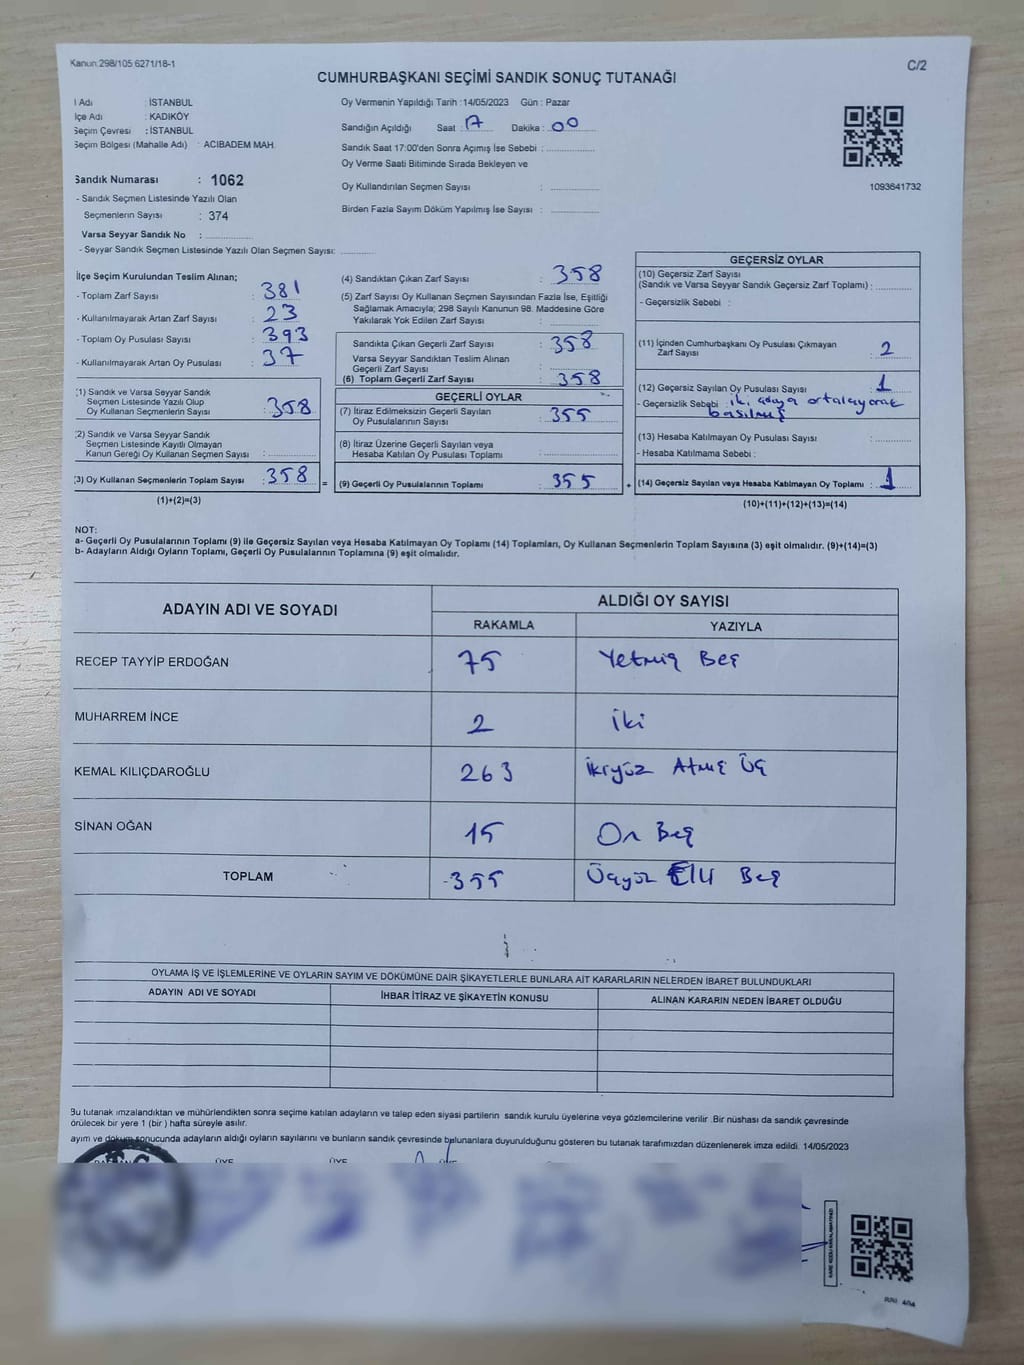 Kanun:298/105.6271/18-1
C/2
CUMHURBAŞKANI SEÇİMİ SANDIK SONUÇ TUTANAĞI
l Adı : İSTANBUL
lçe Adı : KADIKÖY
Seçim Çevresi : İSTANBUL
Seçim Bölgesi (Mahalle Adı) : ACIBADEM MAH.
Sandık Numarası : 1062
- Sandık Seçmen Listesinde Yazılı Olan
Seçmenlerin Sayısı : 374
Varsa Seyyar Sandık No :
- Seyyar Sandık Seçmen Listesinde Yazılı Olan Seçmen Sayısı:
Oy Vermenin Yapıldığı Tarih :14/05/2023 Gün : Pazar
Sandığın Açıldığı Saat : 17 Dakika : 00
Sandık Saat 17:00'den Sonra Açımış İse Sebebi :
Oy Verme Saati Bitiminde Sırada Bekleyen ve
Oy Kullandırılan Seçmen Sayısı :
Birden Fazla Sayım Döküm Yapılmış İse Sayısı :
1093641732
İlçe Seçim Kurulundan Teslim Alınan;
- Toplam Zarf Sayısı : 381
- Kullanılmayarak Artan Zarf Sayısı : 23
- Toplam Oy Pusulası Sayısı : 393
- Kullanılmayarak Artan Oy Pusulası : 37
(1) Sandık ve Varsa Seyyar Sandık
Seçmen Listesinde Yazılı Olup
Oy Kullanan Seçmenlerin Sayısı : 358
(2) Sandık ve Varsa Seyyar Sandık
Seçmen Listesinde Kayıtlı Olmayan
Kanun Gereği Oy Kullanan Seçmen Sayısı :
(3) Oy Kullanan Seçmenlerin Toplam Sayısı : 358 =
(1)+(2)=(3)
(4) Sandıktan Çıkan Zarf Sayısı : 358
(5) Zarf Sayısı Oy Kullanan Seçmen Sayısından Fazla İse, Eşitliği
Sağlamak Amacıyla; 298 Sayılı Kanunun 98. Maddesine Göre
Yakılarak Yok Edilen Zarf Sayısı :
Sandıkta Çıkan Geçerli Zarf Sayısı : 358
Varsa Seyyar Sandıktan Teslim Alınan
Geçerli Zarf Sayısı :
(6) Toplam Geçerli Zarf Sayısı : 358
GEÇERLİ OYLAR
(7) İtiraz Edilmeksizin Geçerli Sayılan
Oy Pusulasının Sayısı : 355
(8) İtiraz Üzerine Geçerli Sayılan veya
Hesaba Katılan Oy Pusulası Toplamı :
(9) Geçerli Oy Pusulalarının Toplamı : 355 +
GEÇERSİZ OYLAR
(10) Geçersiz Zarf Sayısı
(Sandık ve Varsa Seyyar Sandık Geçersiz Zarf Toplamı) :
- Geçersizlik Sebebi :
(11) İçinden Cumhurbaşkanı Oy Pusulası Çıkmayan
Zarf Sayısı : 2
(12) Geçersiz Sayılan Oy Pusulası Sayısı : 1
- Geçersizlik Sebebi : iki adaya ortalayarak
basılmış
(13) Hesaba Katılmayan Oy Pusulası Sayısı :
- Hesaba Katılmama Sebebi :
(14) Geçersiz Sayılan veya Hesaba Katılmayan Oy Toplamı : 1
(10)+(11)+(12)+(13)=(14)
NOT:
a- Geçerli Oy Pusulalarının Toplamı (9) ile Geçersiz Sayılan veya Hesaba Katılmayan Oy Toplamı (14) Toplamları, Oy Kullanan Seçmenlerin Toplam Sayısına (3) eşit olmalıdır. (9)+(14)=(3)
b- Adayların Aldığı Oyların Toplamı, Geçerli Oy Pusulalarının Toplamına (9) eşit olmalıdır.
ADAYIN ADI VE SOYADI ALDIĞI OY SAYISI
RAKAMLA YAZIYLA
RECEP TAYYİP ERDOĞAN 75 Yetmiş Beş
MUHARREM İNCE 2 İki
KEMAL KILIÇDAROĞLU 263 İkiyüz Atmış Üç
SİNAN OĞAN 15 On Beş
TOPLAM 355 Üçyüz Elli Beş
OYLAMA İŞ VE İŞLEMLERİNE VE OYLARIN SAYIM VE DÖKÜMÜNE DAİR ŞİKAYETLERLE BUNLARA AİT KARARLARIN NELERDEN İBARET BULUNDUKLARI
ADAYIN ADI VE SOYADI İHBAR İTİRAZ VE ŞİKAYETİN KONUSU ALINAN KARARIN NEDEN İBARET OLDUĞU
Bu tutanak imzalandıktan ve mühürlendikten sonra seçime katılan adayların ve talep eden siyasi partilerin sandık kurulu üyelerine veya gözlemcilerine verilir. Bir nüshası da sandık çevresinde
örülecek bir yere 1 (bir ) hafta süreyle asılır.
ayım ve döküm sonucunda adayların aldığı oyların sayılarını ve bunların sandık çevresinde bulunanlara duyurulduğunu gösteren bu tutanak tarafımızdan düzenlenerek imza edildi. 14/05/2023
BAŞKAN ÜYE ÜYE ÜYE